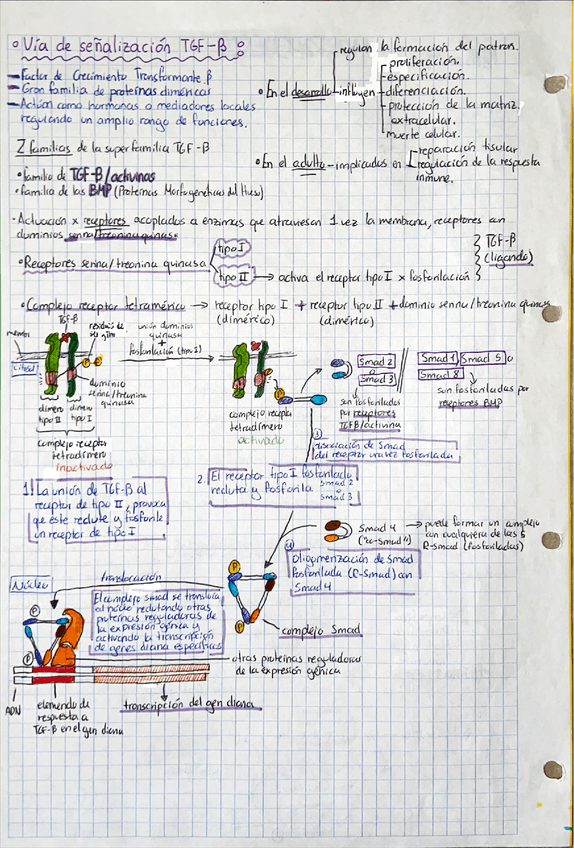 Vía de señalización TGF-β
– Factor de Crecimiento Transformante β
– Gran familia de proteínas diméricas
– Actúan como hormonas o mediadores locales
regulando un amplio rango de funciones.
• En el desarrollo – influyen
regulan la formación del patrón.
proliferación.
especificación.
diferenciación.
protección de la matriz
extracelular.
muerte celular.
2 familias de la superfamilia TGF-β
• familia de TGF-β/activinas
• familia de las BMP (Proteínas Morfogenéticas del Hueso)
• En el adulto – implicados en
reparación tisular
regulación de la respuesta
inmune.
• Actuación x receptores acoplados a enzimas que atraviesan 1 vez la membrana, receptores con
dominios serina/treonina quinasa
• Receptores serina/treonina quinasa
tipo I
tipo II → activa el receptor tipo I x fosforilación
TGF-β
(ligando)
• Complejo receptor tetramérico → receptor tipo I + receptor tipo II + dominio serina/treonina quinasa
(dimérico) (dimérico)
TGF-β
citosol
unión dominios
quinasa
+
fosforilación (tipo I)
dominio
serina/treonina
quinasa
dímero
tipo II
dímero
tipo I
complejo receptor
tetradímero
inactivado
complejo receptor
tetradímero
activado
Smad 2
o
Smad 3
son fosforilados
por receptores
TGFβ/activina
Smad 1 Smad 5 o
Smad 8
son fosforilados por
receptores BMP
disociación de Smad
del receptor una vez fosforilada
1. La unión de TGF-β al
receptor de tipo II, provoca
que éste reclute y fosforile
un receptor de tipo I
2. El receptor tipo I fosforilado
recluta y fosforila Smad 2
o
Smad 3
Smad 4
("co-Smad")
→ puede formar un complejo
con cualquiera de las 5
R-Smad (fosforiladas)
Oligomerización de Smad
fosforilada (R-Smad) con
Smad 4
P
complejo Smad
Núcleo
translocación
El complejo smad se transloca
al núcleo reclutando otras
proteínas reguladoras de
la expresión génica y
activando la transcripción
de genes diana específicos
P
P
otras proteínas reguladoras
de la expresión génica
ADN
elemento de
respuesta a
TGF-β en el gen diana
transcripción del gen diana